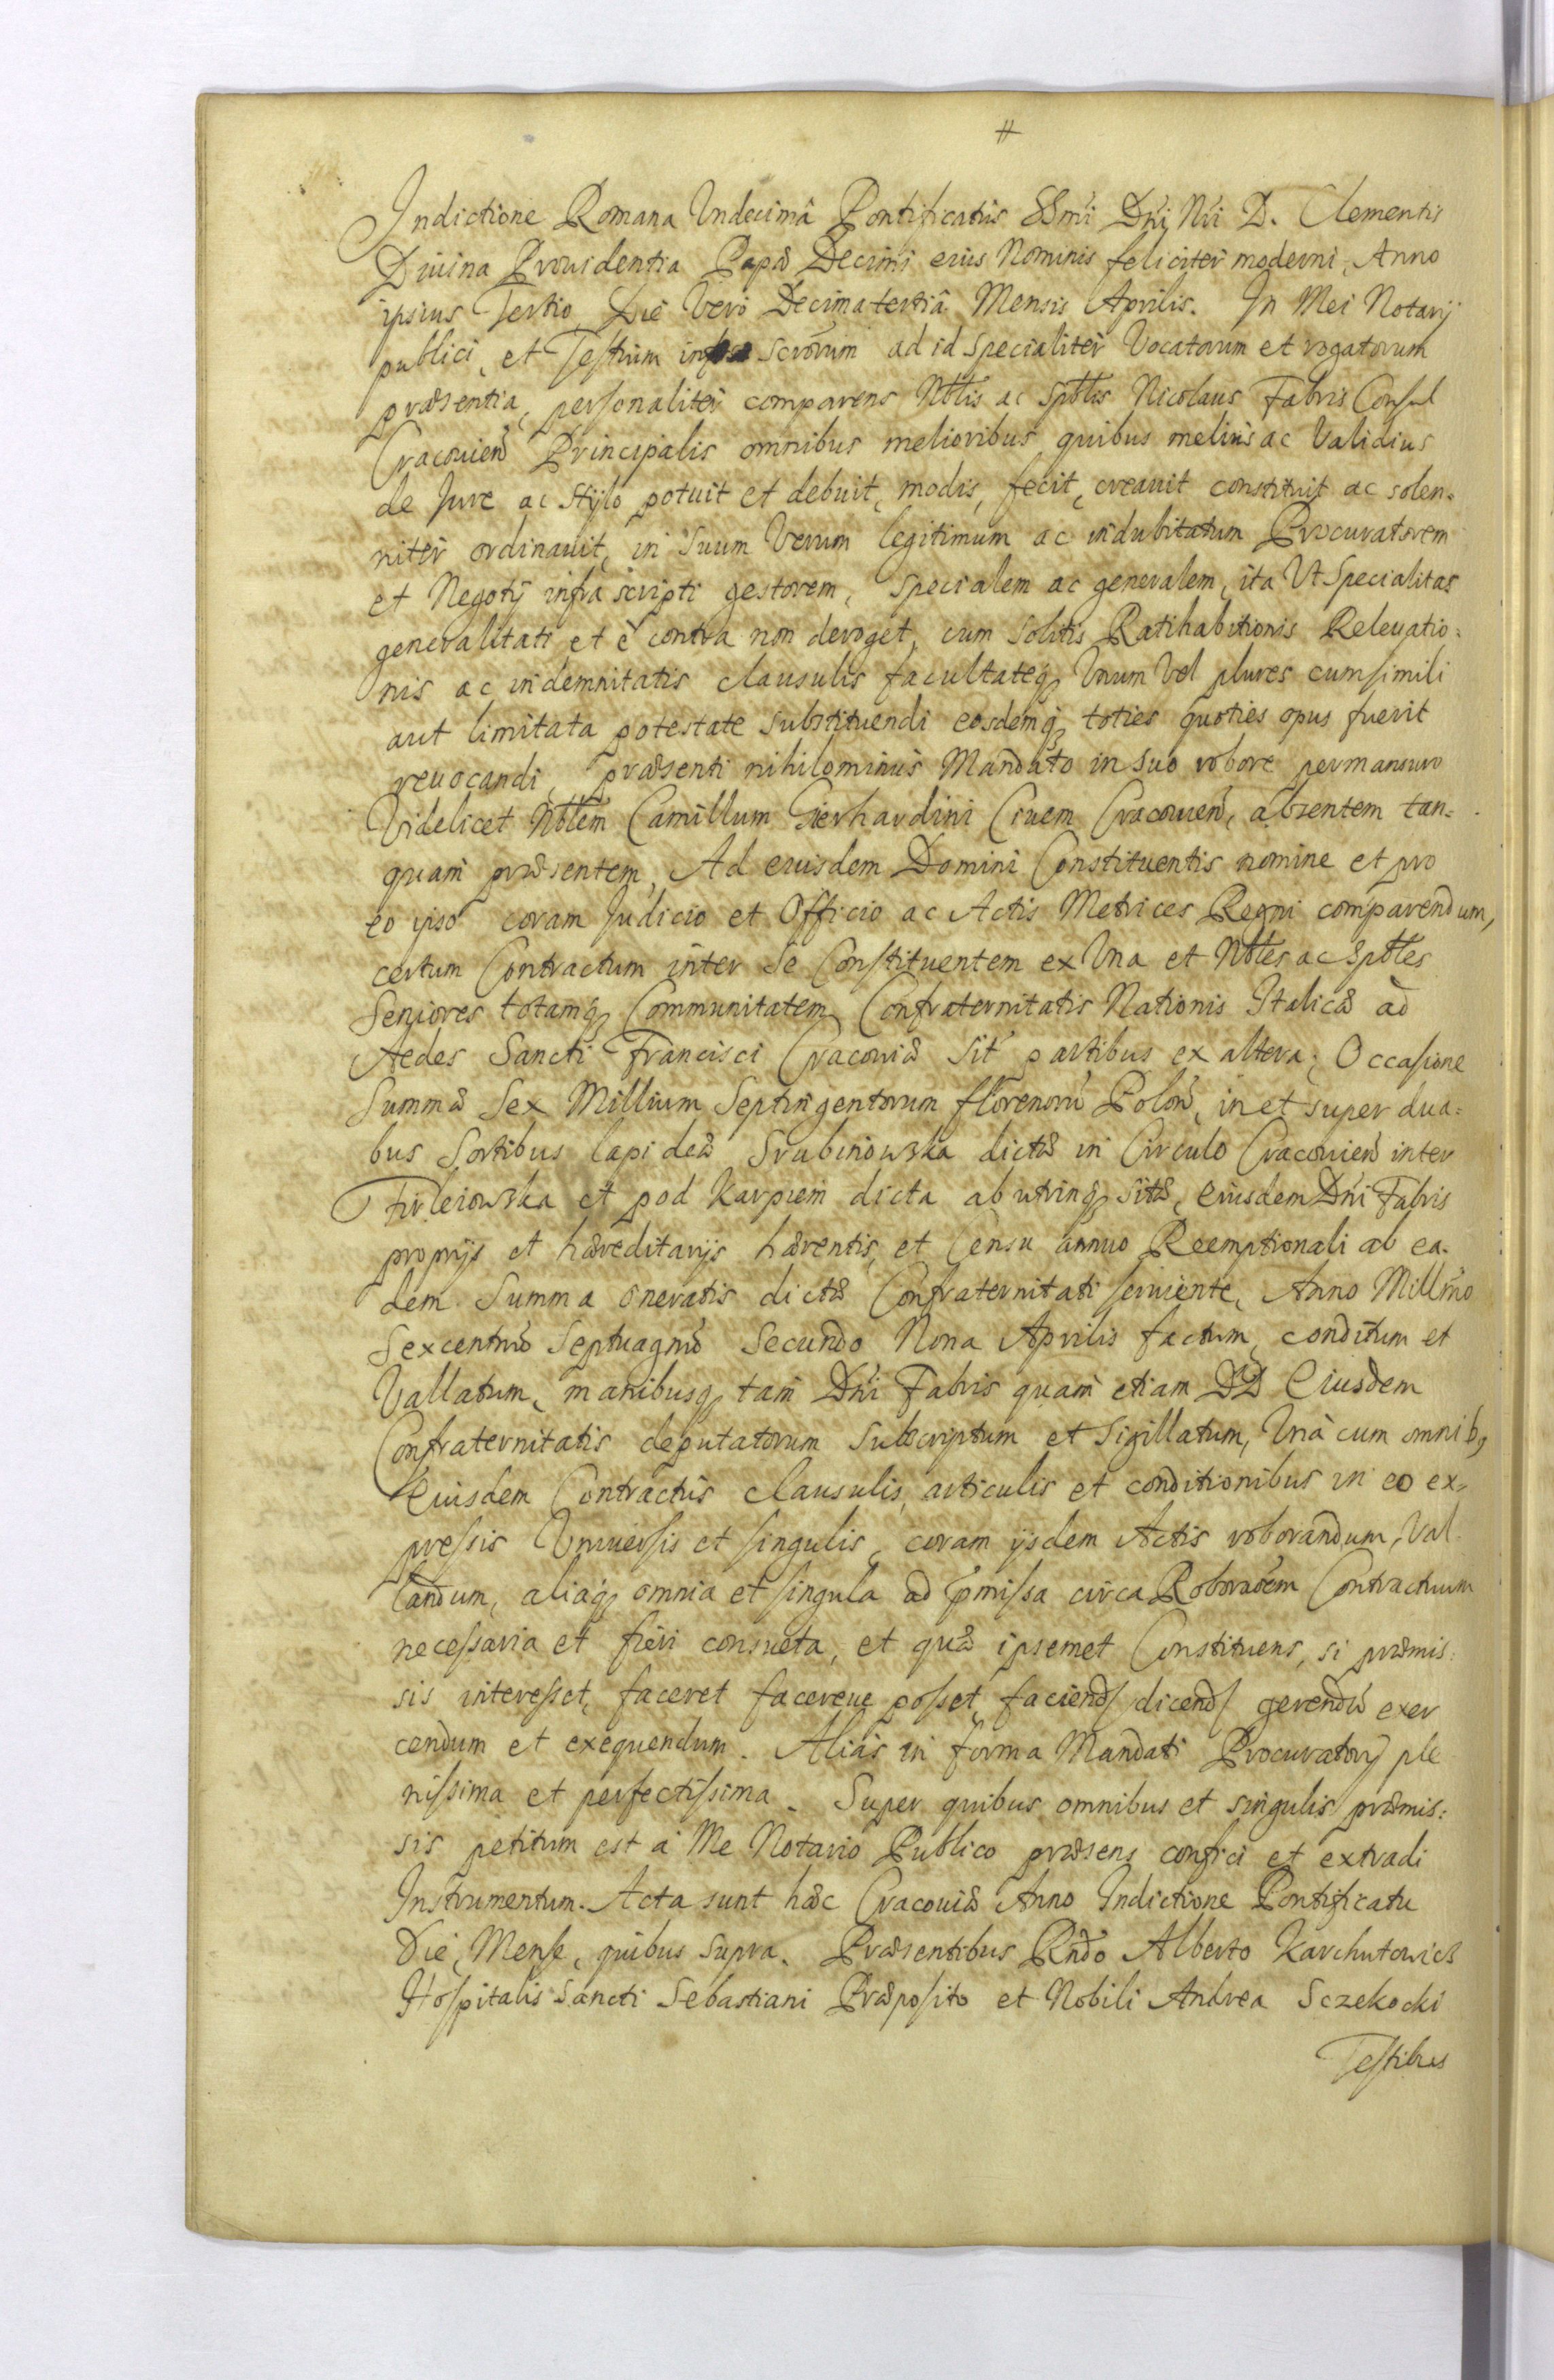 #
Indictione Romana Undecimâ Pontificatus SSmi Dni Nri D. Clementis
Diuina Prouidentia Papæ Decimi eius Nominis feliciter moderni, Anno
ipsius Tertio Die Vero Decima tertiâ Mensis Aprilis. In Mei Notarij
publici, et Testium infra scrorum ad id specialiter Vocatorum et rogatorum
præsentia, personaliter comparens Nblis ac Spblis Nicolaus Fabris Consul
Cracouien Principalis omnibus melioribus quibus melius ac Validius
de Jure ac Stylo potuit et debuit, modis, fecit, creauit constituit ac solen-
niter ordinauit, in suum Verum legitimum ac indubitatum Procuratorem
et Negotij infra scripti gestorem, specialem ac generalem, ita Ut Specialitas
generalitati et è contra non deroget, cum solitis Ratihabitionis Releuatio=
nis ac indemnitatis clausulis facultateq3 Unum Vel plures cum simili
aut limitata potestate substituendi eosdemq3 toties quoties opus fuerit
reuocandi, præsenti nihilominus Mandato in suo robore permansuro
Videlicet Nblem Camillum Gierhardini Ciuem Cracouien, absentem tan=
quam præsentem, Ad eiusdem Domini Constituentis nomine et pro
eo ipso coram Judicio et Officio ac Actis Metrices Regni comparendum,
certum Contractum inter se Constituentem ex Una et Nbles ac Spbles
Seniores totamq3 Communitatem Confraternitatis Nationis Italicæ ad
Aedes Sancti Francisci Cracouiæ Sit partibus ex altera; Occasione
Summæ Sex Millium Septingentorum florenorū Polon, in et super dua=
bus Sortibus lapideæ Srubinowska dictæ in Circulo Cracouien inter
Firleiowska et pod Karpiem dicta ab utrinq3 sitæ, eiusdem Dni Fabris
proprijs et hæreditarijs hærentis, et Censu annuo Reemptionali ab ea-
dem Summa oneratis dictæ Confraternitati seruiente, Anno Millmo
Sexcentmo Septuagmo Secundo Nona Aprilis factum, conditum et
Vallatum, manibusq3 tam Dni Fabris quam etiam DD Eiusdem
Confraternitatis deputatorum Subscriptum et Sigillatum, Unà cum omnib9
Eiusdem Contractus clausulis, articulis et conditionibus in eo ex=
pressis Uniuersis et singulis, coram ijsdem Actis roborandum, Val
landum, aliaq3 omnia et singula ad pmissa circa Roboraoem Contractuum
necessaria et fieri consueta, et quæ ipsemet Constituens, si præmis:
sis interesset, faceret facereue posset, faciend dicend gerendū exer
cendum et exequendum. Aliàs in forma Mandati Procuratorij ple
nissima et perfectissima. Super quibus omnibus et singulis præmis:
sis petitum est à Me Notario Publico præsens confici et extradi
Instrumentum. Acta sunt hæc Cracouiæ Anno Indictione Pontificatu
Die, Mense, quibus supra. Præsentibus Rndo Alberto Karchutowicz
Hospitalis Sancti Sebastiani Præposito et Nobili Andrea Sczekocki
Testibus